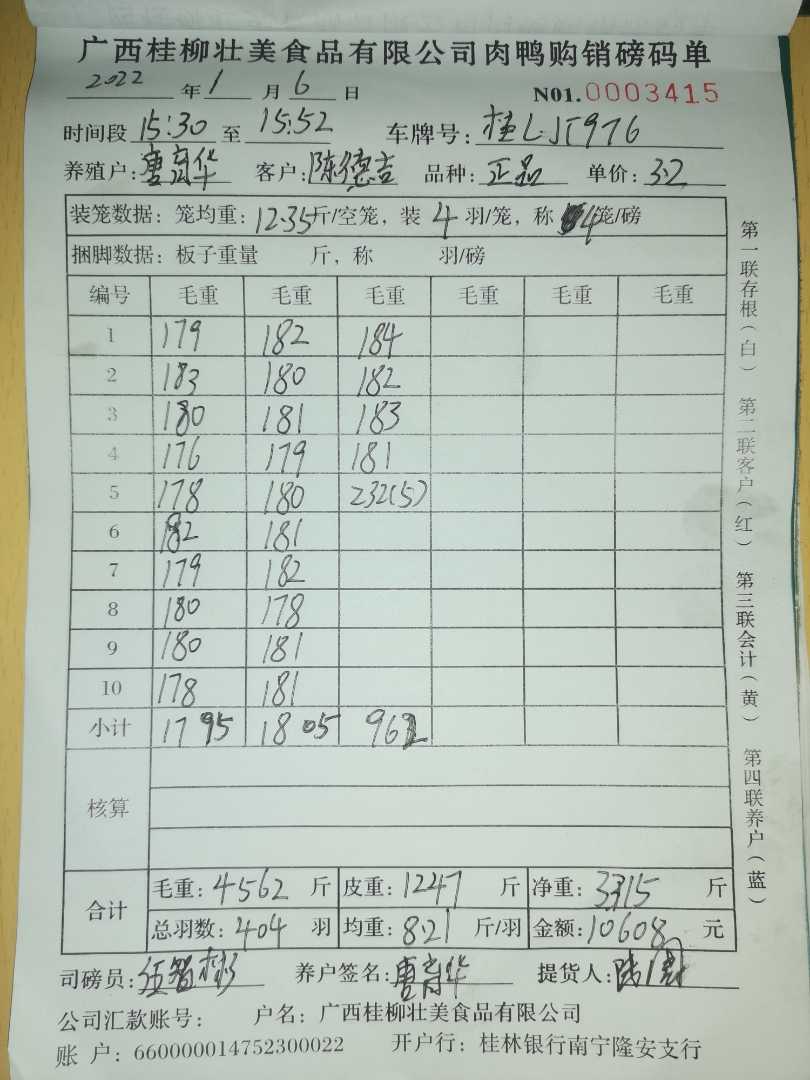 广西桂柳壮美食品有限公司肉鸭购销磅码单
2022 年 1 月 6 日 N01.0003415
时间段 15:30 至 15:52 车牌号:桂LJT976
养殖户:唐育华 客户:陈德吉 品种:正品 单价:3.2
装笼数据:笼均重:12.35斤/空笼,装 4 羽/笼,称 4笼/磅
捆脚数据:板子重量 斤,称 羽/磅
编号 毛重 毛重 毛重 毛重 毛重 毛重
1 179 182 184
2 183 180 182
3 180 181 183
4 176 179 181
5 178 180 232(5)
6 182 181
7 179 182
8 180 178
9 180 181
10 178 181
小计 1795 1805 962
核算
合计 毛重:4562 斤 皮重:1247 斤 净重:3315 斤
总羽数:404 羽 均重:8.21 斤/羽 金额:10608 元
司磅员: 养户签名:唐育华 提货人:
公司汇款账号: 户名:广西桂柳壮美食品有限公司
账 户:660000014752300022 开户行:桂林银行南宁隆安支行
第一联存根(白) 第二联客户(红) 第三联会计(黄) 第四联养户(蓝)